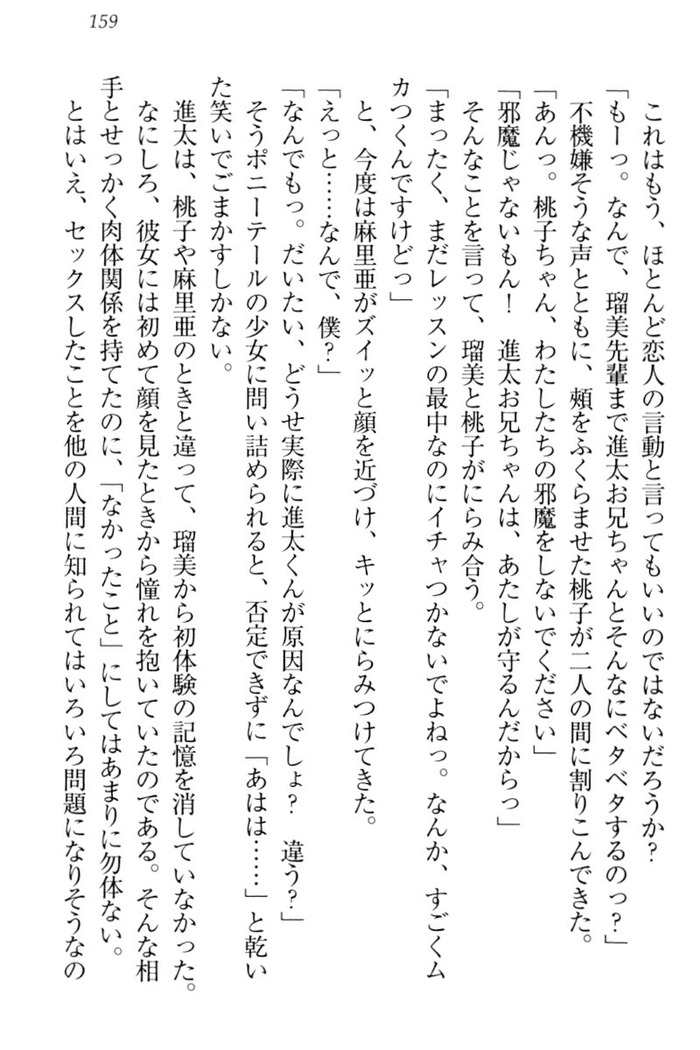 159
これはもう、ほとんど恋人の言動と言ってもいいのではないだろうか？
「もーっ。なんで、瑠美先輩まで進太お兄ちゃんとそんなにベタベタするのっ？」
不機嫌そうな声とともに、頬をふくらませた桃子が二人の間に割りこんできた。
「あんっ。桃子ちゃん、わたしたちの邪魔をしないでください」
「邪魔じゃないもん！　進太お兄ちゃんは、あたしが守るんだからっ」
そんなことを言って、瑠美と桃子がにらみ合う。
「まったく、まだレッスンの最中なのにイチャつかないでよねっ。なんか、すごくム
カつくんですけどっ」
と、今度は麻里亜がズイッと顔を近づけ、キッとにらみつけてきた。
「えっと……なんで、僕？」
「なんでもっ。だいたい、どうせ実際に進太くんが原因なんでしょ？　違う？」
そうポニーテールの少女に問い詰められると、否定できずに「あはは……」と乾い
た笑いでごまかすしかない。
進太は、桃子や麻里亜のときと違って、瑠美から初体験の記憶を消していなかった。
なにしろ、彼女には初めて顔を見たときから憧れを抱いていたのである。そんな相
手とせっかく肉体関係を持てたのに、「なかったこと」にしてはあまりに勿体ない。
とはいえ、セックスしたことを他の人間に知られてはいろいろ問題になりそうなの